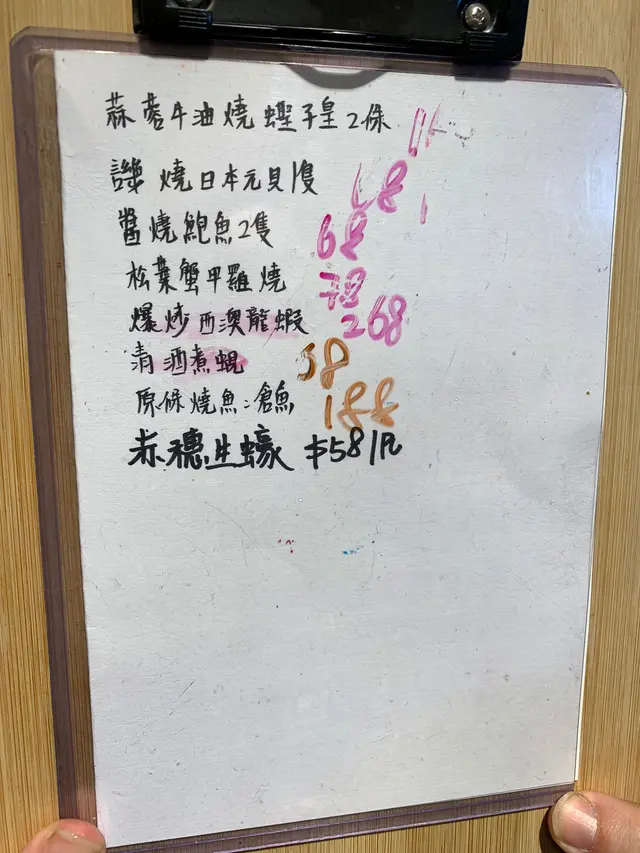 蒜蓉牛油燒蟶子皇2條
燒日本元貝1隻 68
醬燒鮑魚2隻 68
松葉蟹甲羅燒 78
爆炒西澳龍蝦 268
清酒煮蜆 58
原條燒魚:倉魚 188
赤穗生蠔 $58/1只